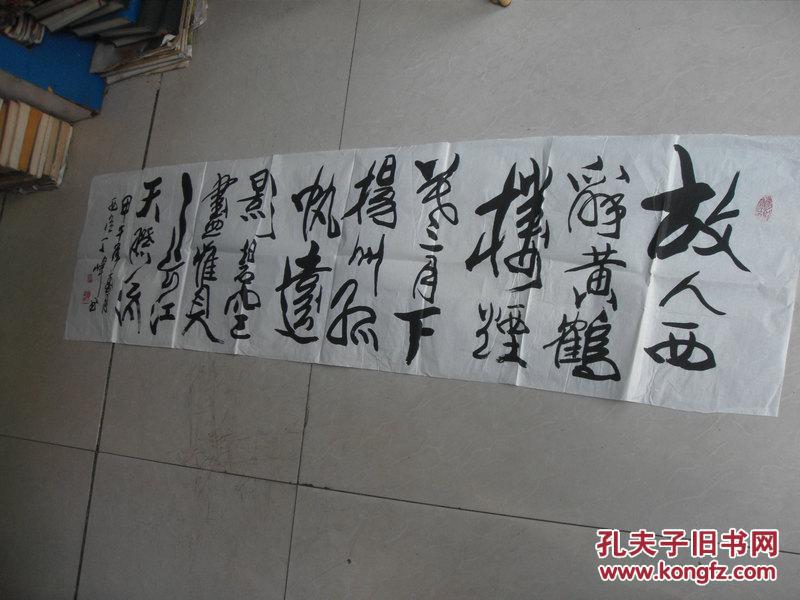 故人西
辭黄鶴
樓煙
花三月下
揚州孤
帆遠
影碧空
盡惟見
長江
天際流
甲午
書
孔夫子旧书网
www.kongfz.com